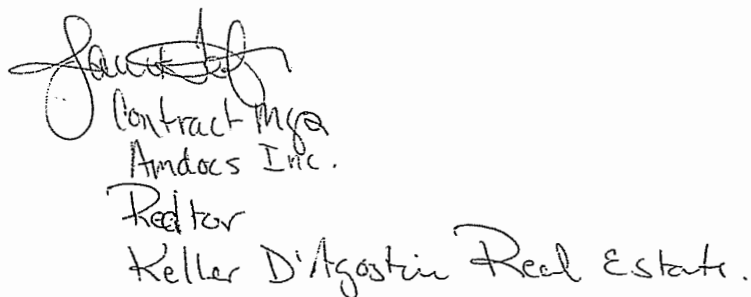 Contract Mgr
Amdocs Inc.
Realtor
Keller D'Agostin Real Estate.